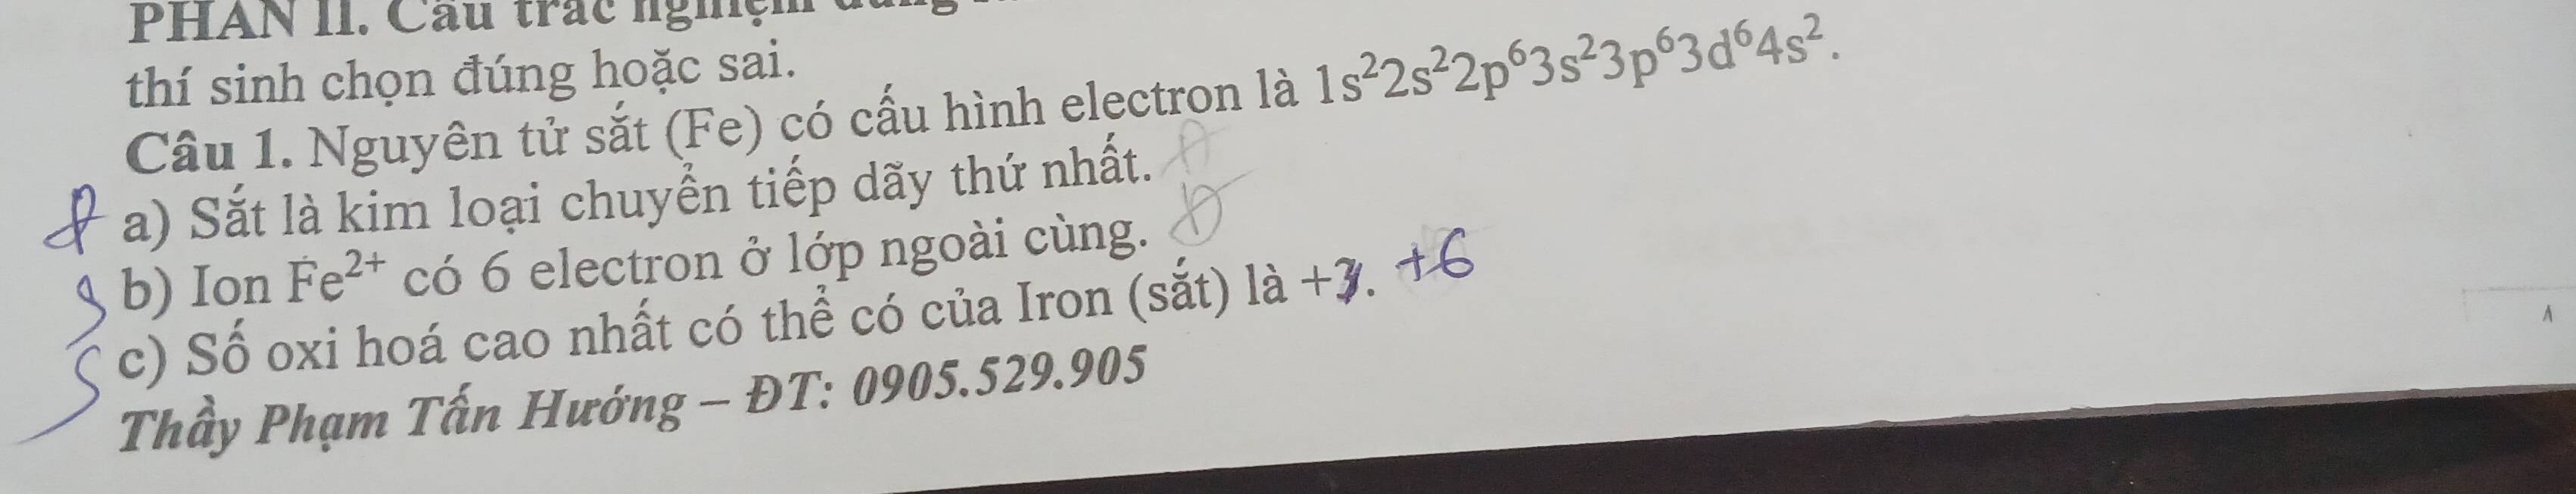 PHẦN II. Câu trắc nghiệm
thí sinh chọn đúng hoặc sai.
Câu 1. Nguyên tử sắt (Fe) có cấu hình electron là 1s²2s²2p⁶3s²3p⁶3d⁶4s².
Đ a) Sắt là kim loại chuyển tiếp dãy thứ nhất.
S b) Ion Fe²⁺ có 6 electron ở lớp ngoài cùng.
S c) Số oxi hoá cao nhất có thể có của Iron (sắt) là +3. +6
Thầy Phạm Tấn Hướng – ĐT: 0905.529.905
1